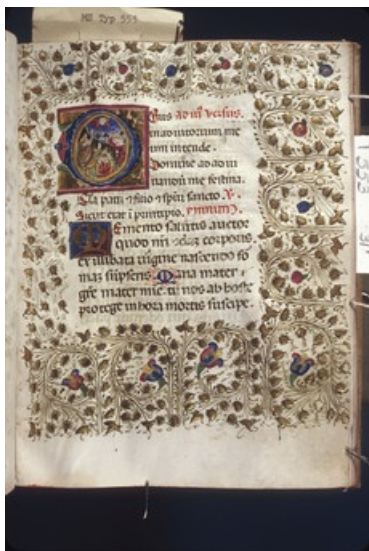 MS Typ 553
Deus ad iii versus.
in adiutorium me
um intende.
Domine ad adiu
uandū me festina.
Gl'a patri & filio & sp̄ui sancto
Sicut erat ī principio. ymnum
Memento salutis auctor
quod nr̄i corporis
ex illibata uirgine nascendo fo
maz sūpseris. Maria mater
gr̄e mater mīe. tu nos ab hoste
protege in hora mortis suscipe.